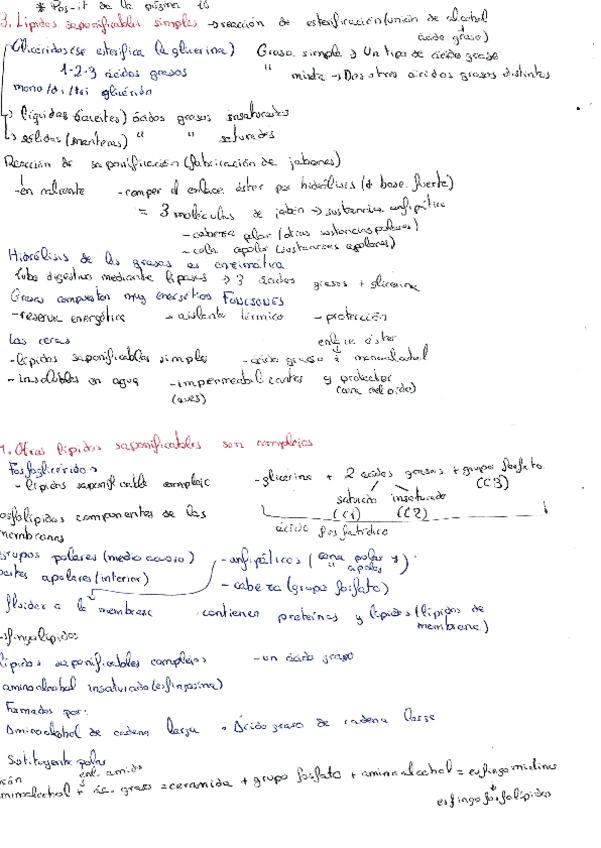 * Pos-it de la página 16
3. Lípidos saponificables simples → reacción de esterificación (unión de alcohol
ácido graso)
Glicéridos (se esterifica la glicerina) Grasa simple → Un tipo de ácido graso
1-2-3 ácidos grasos " mixta → Dos o tres ácidos grasos distintos
mono/di/tri glicérido
→ líquidas (aceites) ácidos grasos insaturados
→ sólidas (mantecas) " " saturados
Reacción de saponificación (fabricación de jabones)
- en caliente - romper el enlace éster por hidrólisis (+ base fuerte)
= 3 moléculas de jabón → sustancia anfipática
- cabeza polar (otras sustancias polares)
- cola apolar (sustancias apolares)
Hidrólisis de las grasas es enzimática
tubo digestivo mediante lipasas → 3 ácidos grasos + glicerina
Grasas compuestos muy energéticos FUNCIONES
- reserva energética - aislante térmico - protección
Las ceras enlace éster
- lípidos saponificables simples - ácido graso + monoalcohol
- insolubles en agua - impermeabilizantes y protector
(aves) (cera del oído)
4. Otros lípidos saponificables son complejos
Fosfoglicéridos
- lípidos saponificable complejo - glicerina + 2 ácidos grasos + grupo fosfato
saturado insaturado (C3)
(C1) (C2)
osfolípidos componentes de las
membranas ácido fosfatídico
grupos polares (medio acuoso) - anfipáticos (zona polar y
" apolar)
partes apolares (interior) - cabeza (grupo fosfato)
fluidez a la membrana contienen proteínas y lípidos (lípidos de
membrana)
sfingolípidos
lípidos saponificables complejos - un ácido graso
aminoalcohol insaturado (esfingosina)
Formados por:
Aminoalcohol de cadena larga Ácido graso de cadena larga
Sustituyente polar
enl. amida
aminoalcohol + ác. graso = ceramida + grupo fosfato + aminoalcohol = esfingomielinas
esfingofosfolípidos